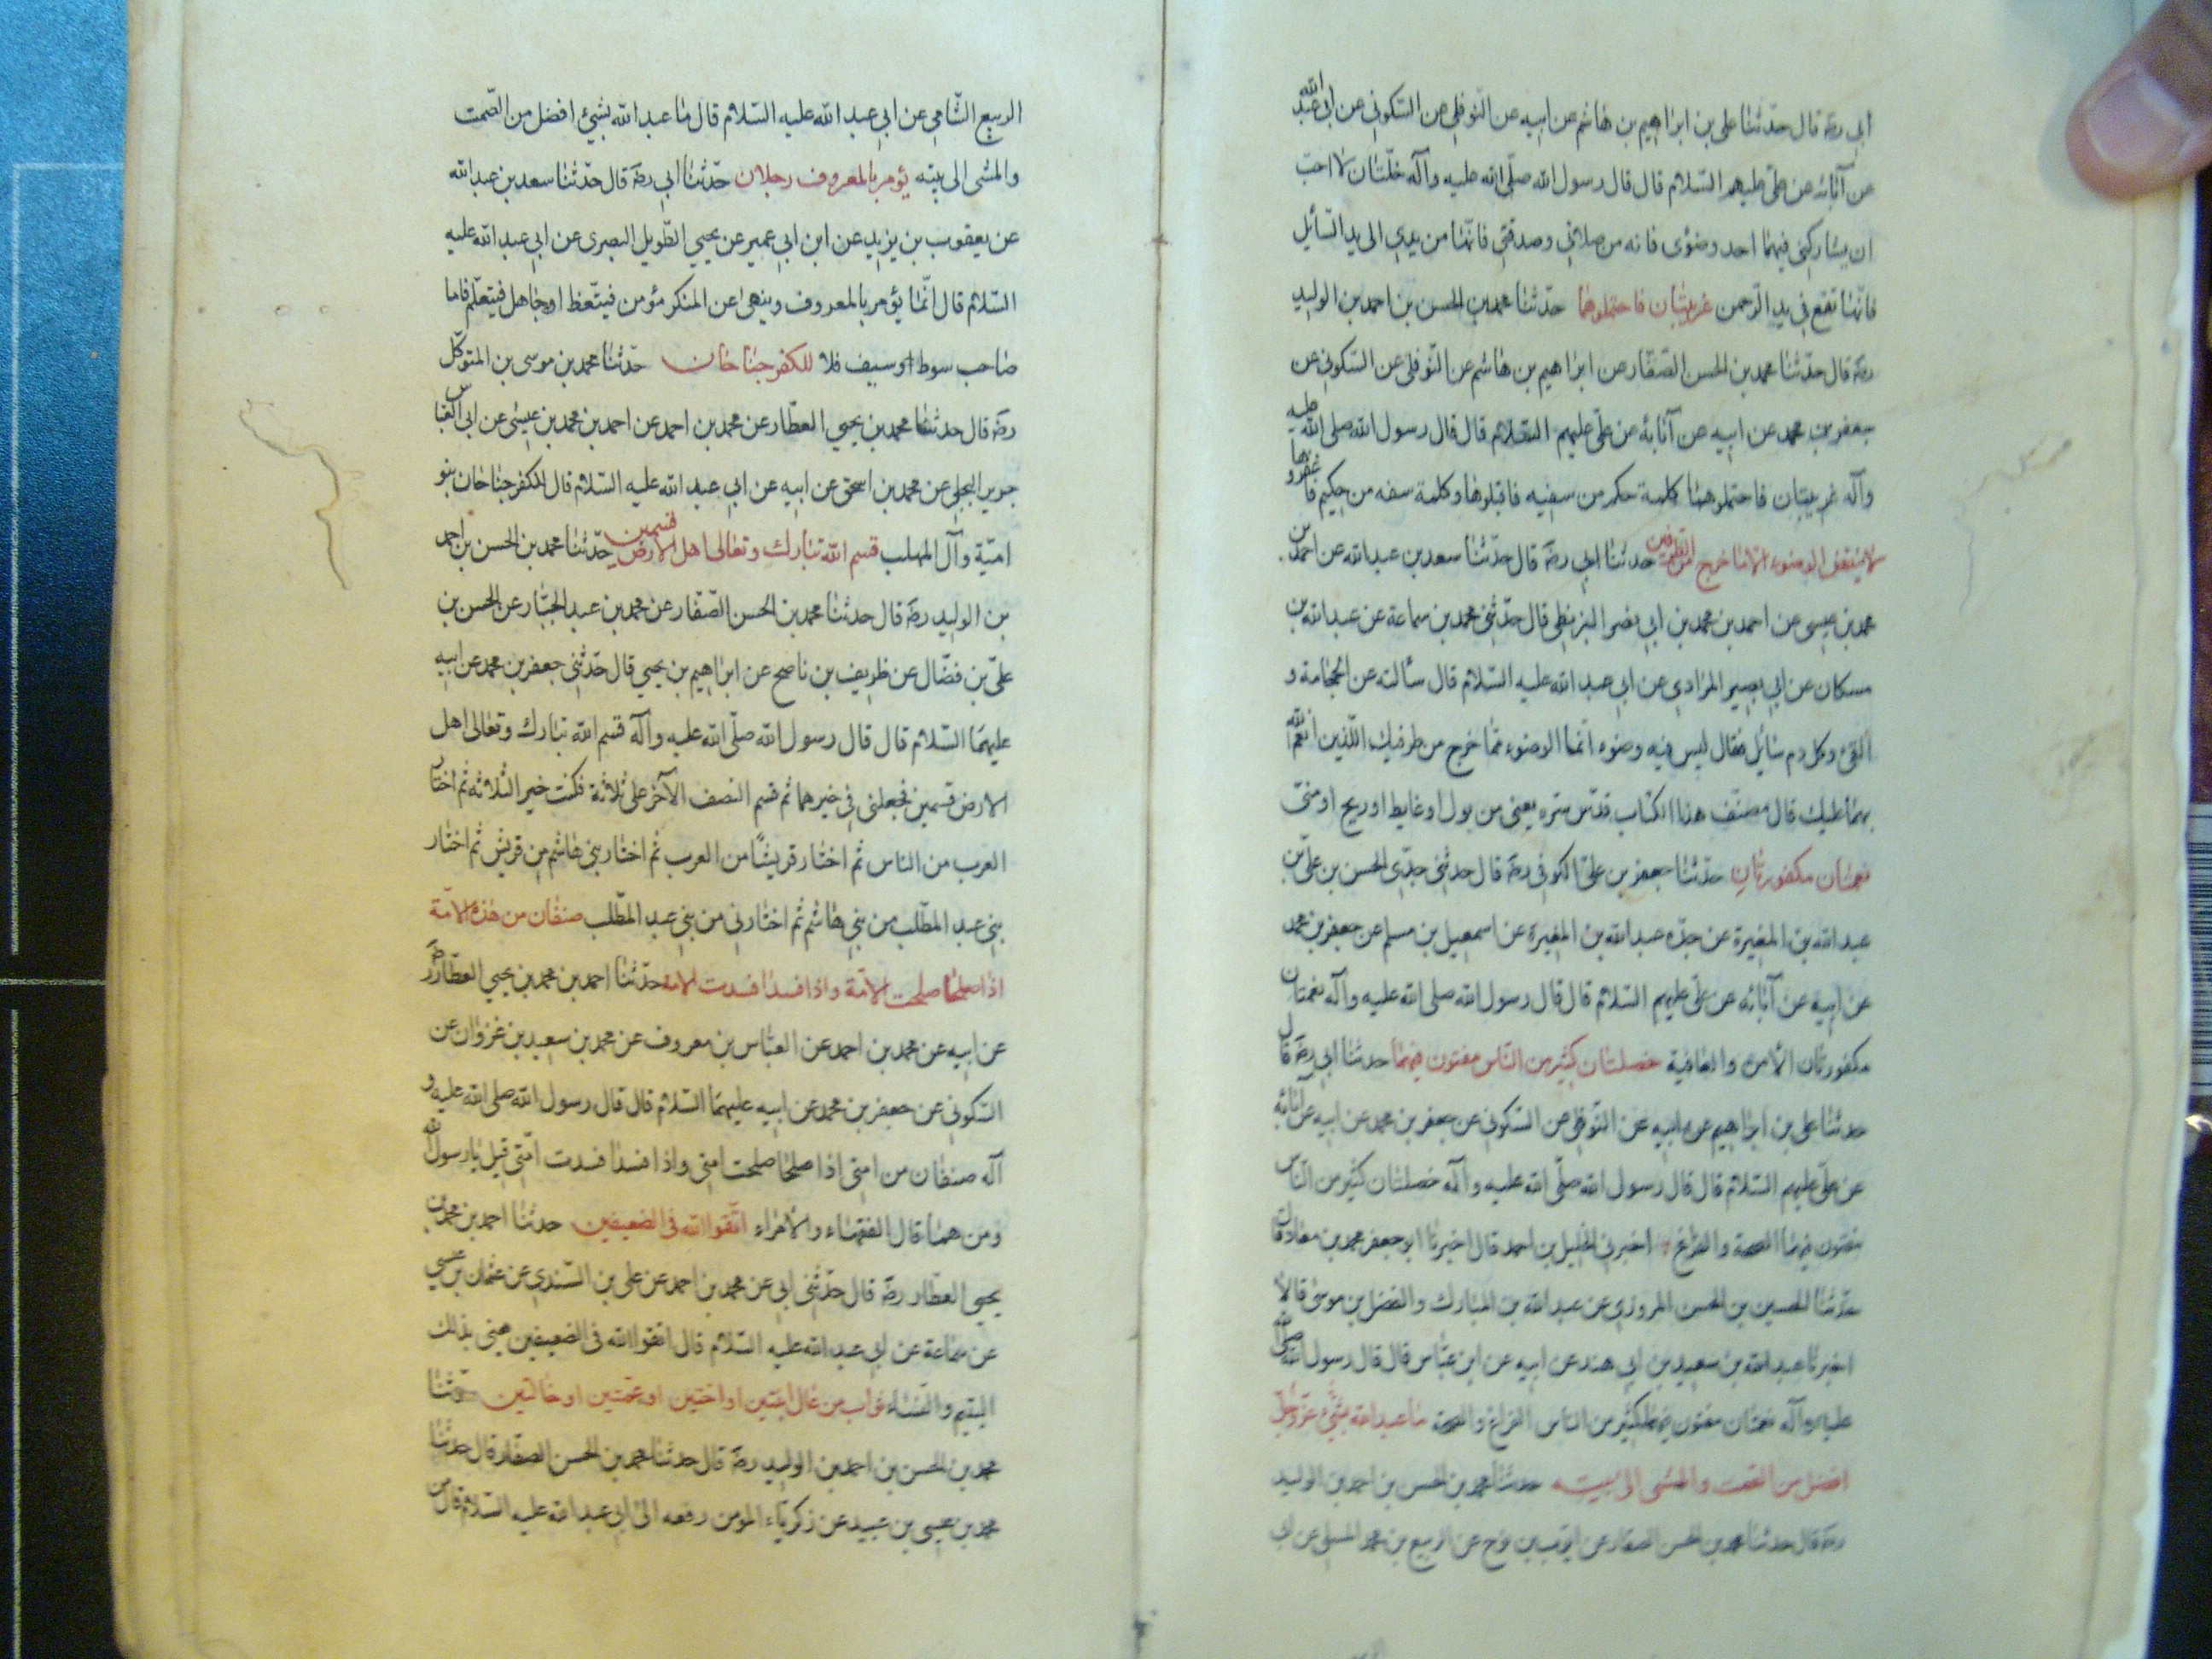 ابى ره قال حدّثنا على بن ابراهيم بن هاشم عن ابيه عن النّوفلى عن السّكونى عن ابى عبد الله
عن آبائه عن علىّ عليهم السّلام قال قال رسول الله صلّى الله عليه وآله خلّتان لا احبّ
ان يشاركنى فيهما احد وضوئى فانه من صلاتى وصدقتى فانّها من يدى الى يد السّائل
فانّها تقع فى يد الرّحمن غريبتان فاحتملوهما حدّثنا محمد بن الحسن بن احمد بن الوليد
رضه قال حدّثنا محمد بن الحسن الصّفّار عن ابراهيم بن هاشم عن النّوفلى عن السّكونى عن
جعفر بن محمد عن ابيه عن آبائه عن علىّ عليهم السّلام قال قال رسول الله صلى الله عليه
وآله غريبتان فاحتملوهما كلمة حكم من سفيه فاقبلوها وكلمة سفه من حكيم فاغفروها
لا ينقض الوضوء الا ما خرج من الطرفين حدثنا ابى رضه قال حدّثنا سعد بن عبد الله عن احمد بن
محمد بن عيسى عن احمد بن محمد بن ابى نصر البزنطى قال حدّثنى محمد بن سماعة عن عبد الله بن
مسكان عن ابى بصير المرادى عن ابى عبد الله عليه السّلام قال سألته عن الحجامة و
القئ وكل دم سائل فقال ليس فيه وضوء انّما الوضوء ممّا خرج من طرفيك اللّذين انعم الله
بهما عليك قال مصنّف هذا الكتاب قدّس سّره يعنى من بول او غايط او ريح او منىّ
نعمتان مكفورتان حدّثنا جعفر بن علىّ الكوفى رضه قال حدثنى جدّى الحسن بن علىّ بن
عبد الله بن المغيرة عن جدّه عبد الله بن المغيرة عن اسمعيل بن مسلم عن جعفر بن محمد
عن ابيه عن آبائه عن علىّ عليهم السّلام قال قال رسول الله صلى الله عليه وآله نعمتان
مكفورتان الأمن والعافية خصلتان كثير من النّاس مفتون فيهما حدثنا ابى رضه قال
حدثنا على بن ابراهيم عن ابيه عن النّوفلى عن السكونى عن جعفر بن محمد عن ابيه عن آبائه
عن علىّ عليهم السّلام قال قال رسول الله صلّى الله عليه وآله خصلتان كثير من النّاس
مفتون فيهما الصحة والفراغ اخبرنى الخليل بن احمد قال اخبرنا ابو جعفر محمد بن معاذ قال
حدّثنا الحسين بن الحسن المروزى عن عبد الله بن المبارك والفضل بن موسى قالا
اخبرنا عبد الله بن سعيد بن ابى هند عن ابيه عن ابن عبّاس قال قال رسول الله صلى الله
عليه وآله نعمتان مفتون فيهما كثير من الناس الفراغ والصحة ما عبد الله بشئ عزّ وجلّ
افضل من الصّمت والمشى الى بيته حدثنا محمد بن الحسن بن احمد بن الوليد
رضه قال حدثنا محمد بن الحسن الصفار عن ايّوب بن نوح عن الربيع بن محمد المسلى عن ابى
الربيع الشّامى عن ابى عبد الله عليه السّلام قال ما عبد الله بشئ افضل من الصّمت
والمشى الى بيته يؤمر بالمعروف رجلان حدّثنا ابى رضه قال حدّثنا سعد بن عبد الله
عن يعقوب بن يزيد عن ابن ابى عمير عن يحيى الطّويل البصرى عن ابى عبد الله عليه
السّلام قال انّما يؤمر بالمعروف وينهى عن المنكر مؤمن فيتّعظ او جاهل فيتعلّم فاما
صاحب سوط او سيف فلا للكفر جناحان حدّثنا محمد بن موسى بن المتوكّل
رضه قال حدثنا محمد بن يحيى العطّار عن محمد بن احمد عن احمد بن محمد بن عيسى عن ابى العباس
جرير البجلى عن محمد بن اسحق عن ابيه عن ابى عبد الله عليه السّلام قال للكفر جناحان بنو
اميّة وآل المهلب قسم الله تبارك وتعالى اهل الارض قسمين حدّثنا محمد بن الحسن بن احمد
بن الوليد رضه قال حدثنا محمد بن الحسن الصّفّار عن محمد بن عبد الجبّار عن الحسن بن
علىّ بن فضّال عن ظريف بن ناصح عن ابراهيم بن يحيى قال حدّثنى جعفر بن محمد عن ابيه
عليهما السّلام قال قال رسول الله صلّى الله عليه وآله قسم الله تبارك وتعالى اهل
الارض قسمين فجعلنى فى خيرهما ثم قسم النصف الآخر على ثلاثة فكنت خير الثّلاثه ثم اختار
العرب من الناس ثم اختار قريشًا من العرب ثم اختار بنى هاشم من قريش ثم اختار
بنى عبد المطّلب من بنى هاشم ثم اختارنى من بنى عبد المطّلب صنفان من هذه الامّة
اذا صلحا صلحت الامّة واذا فسدا فسدت الامة حدّثنا احمد بن محمد بن يحيى العطّار رضه
عن ابيه عن محمد بن احمد عن العبّاس بن معروف عن محمد بن سعيد بن غزوان عن
السّكونى عن جعفر بن محمد عن ابيه عليهما السّلام قال قال رسول الله صلى الله عليه و
آله صنفان من امتى اذا صلحا صلحت امتى واذا فسدا فسدت امّتى قيل يا رسول الله
ومن هما قال الفقهاء والأمراء اتّقوا الله فى الضعيفين حدثنا احمد بن محمد بن
يحيى العطّار رضه قال حدّثنى ابى عن محمد بن احمد عن على بن السّندى عن عثمان بن عيسى
عن سماعة عن ابى عبد الله عليه السّلام قال اتقوا الله فى الضعيفين يعنى بذلك
اليتيم والنّساء ثواب من عال ابنتين او اختين او عمّتين او خالتين حدّثنا
محمد بن الحسن بن احمد بن الوليد رضه قال حدثنا محمد بن الحسن الصفّار قال حدثنا
محمد بن عيسى بن عبيد عن زكريّاء المؤمن رفعه الى ابى عبد الله عليه السّلام قال من